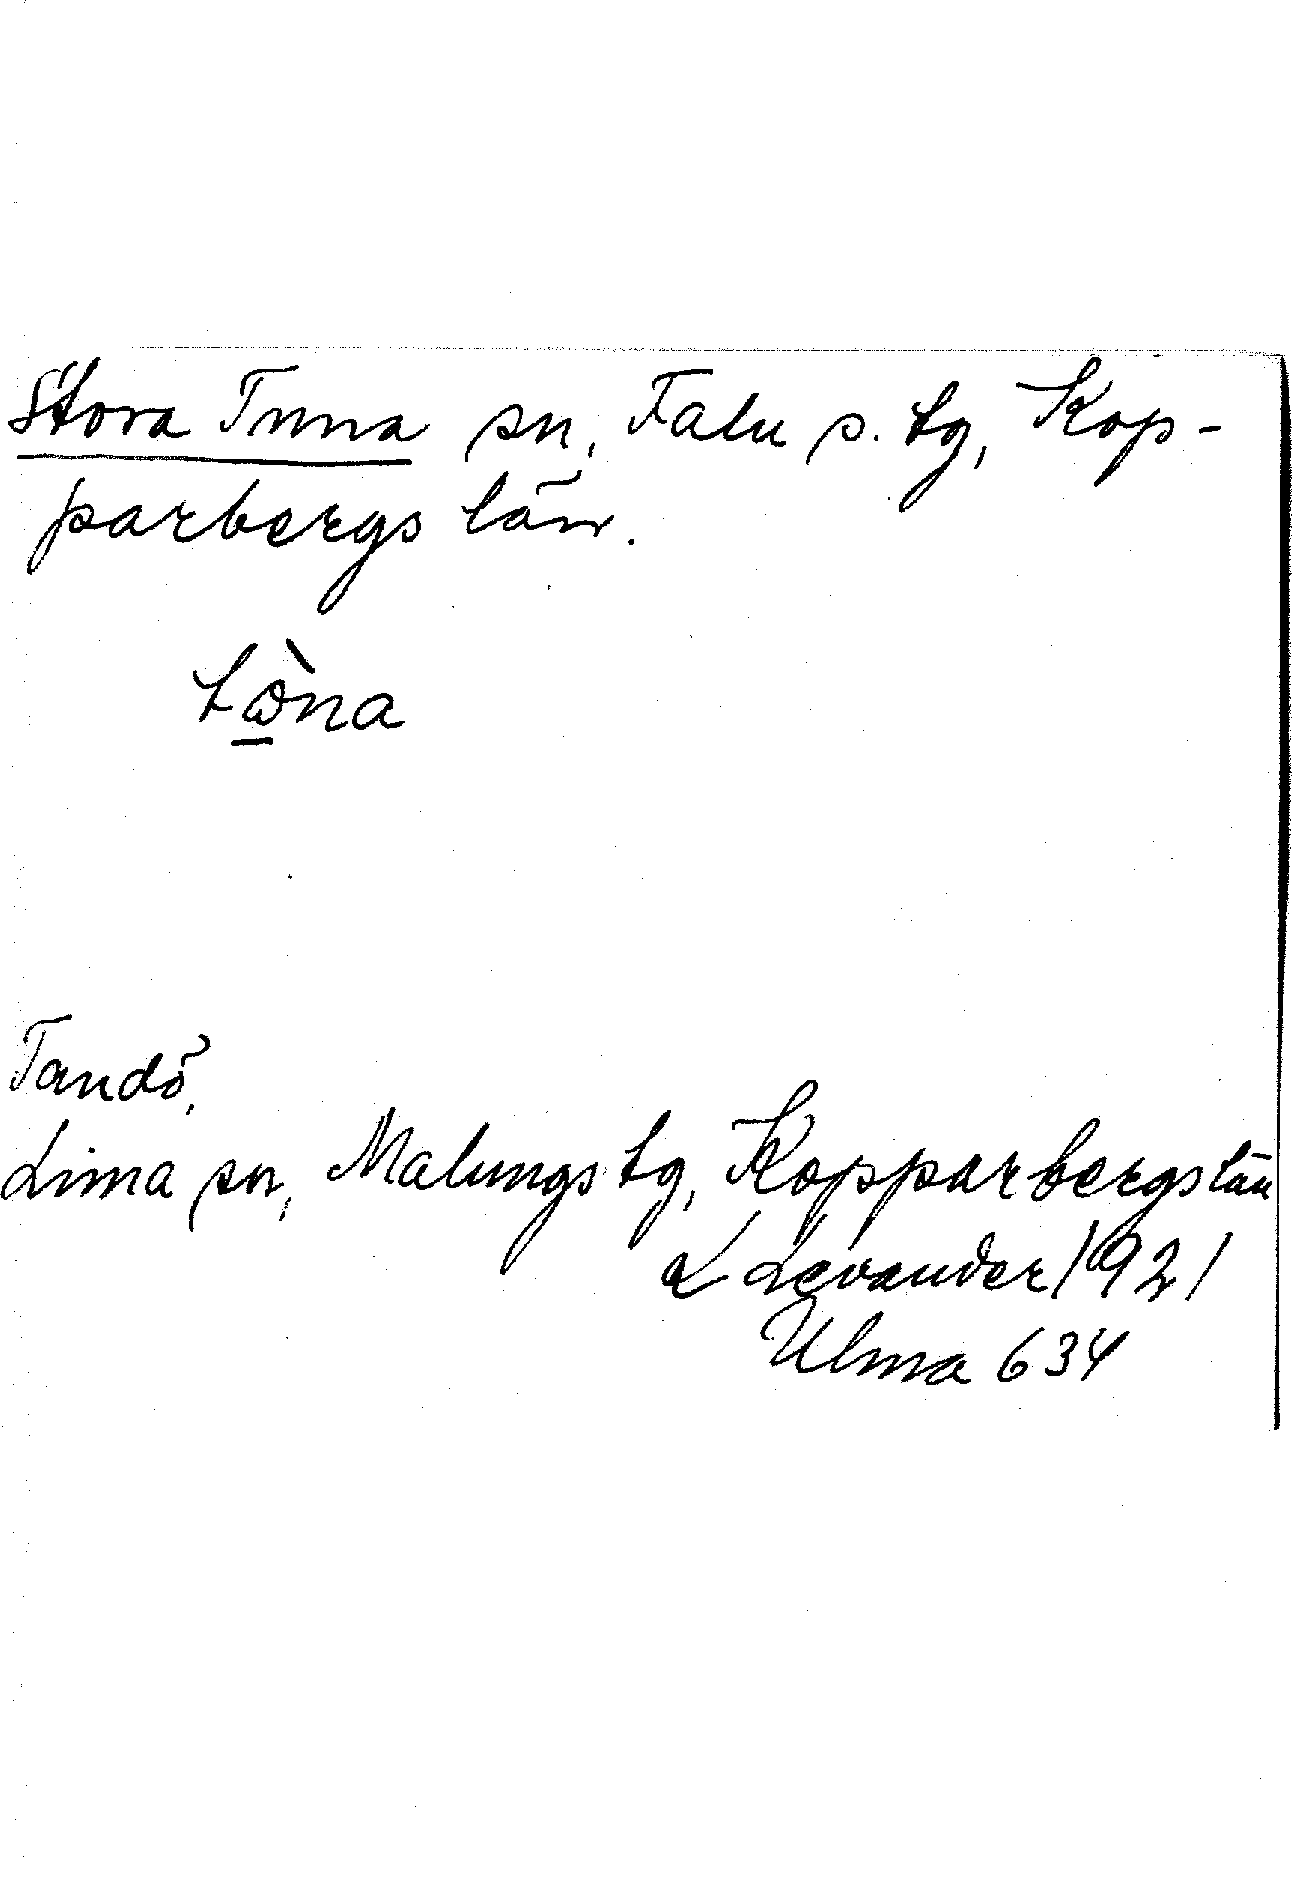 Stora Tuna sn, Falu s. tg, Kop-
parbergs län.
Tandö,
Lima sn, Malungs tg, Kopparbergs län
L Levander 1921
Ulma 634